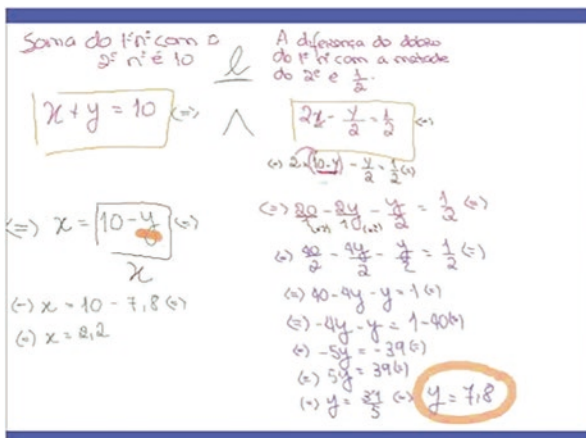 Soma do 1º nº com o
2º nº é 10
e
A diferença do dobro
do 1º nº com a metade
do 2º é 1/2.
x + y = 10 (=)
∧
2x - y/2 = 1/2 (=)
(=) 2×(10-y) - y/2 = 1/2 (=)
(=) x = 10 - y (=)
x
(=) 20/1(×2) - 2y/1(×2) - y/2 = 1/2 (=)
(=) 40/2 - 4y/2 - y/2 = 1/2 (=)
(=) x = 10 - 7,8 (=)
(=) 40 - 4y - y = 1 (=)
(=) x = 2,2
(=) -4y - y = 1 - 40 (=)
(=) -5y = -39 (=)
(=) 5y = 39 (=)
(=) y = 39/5 (=) y = 7,8